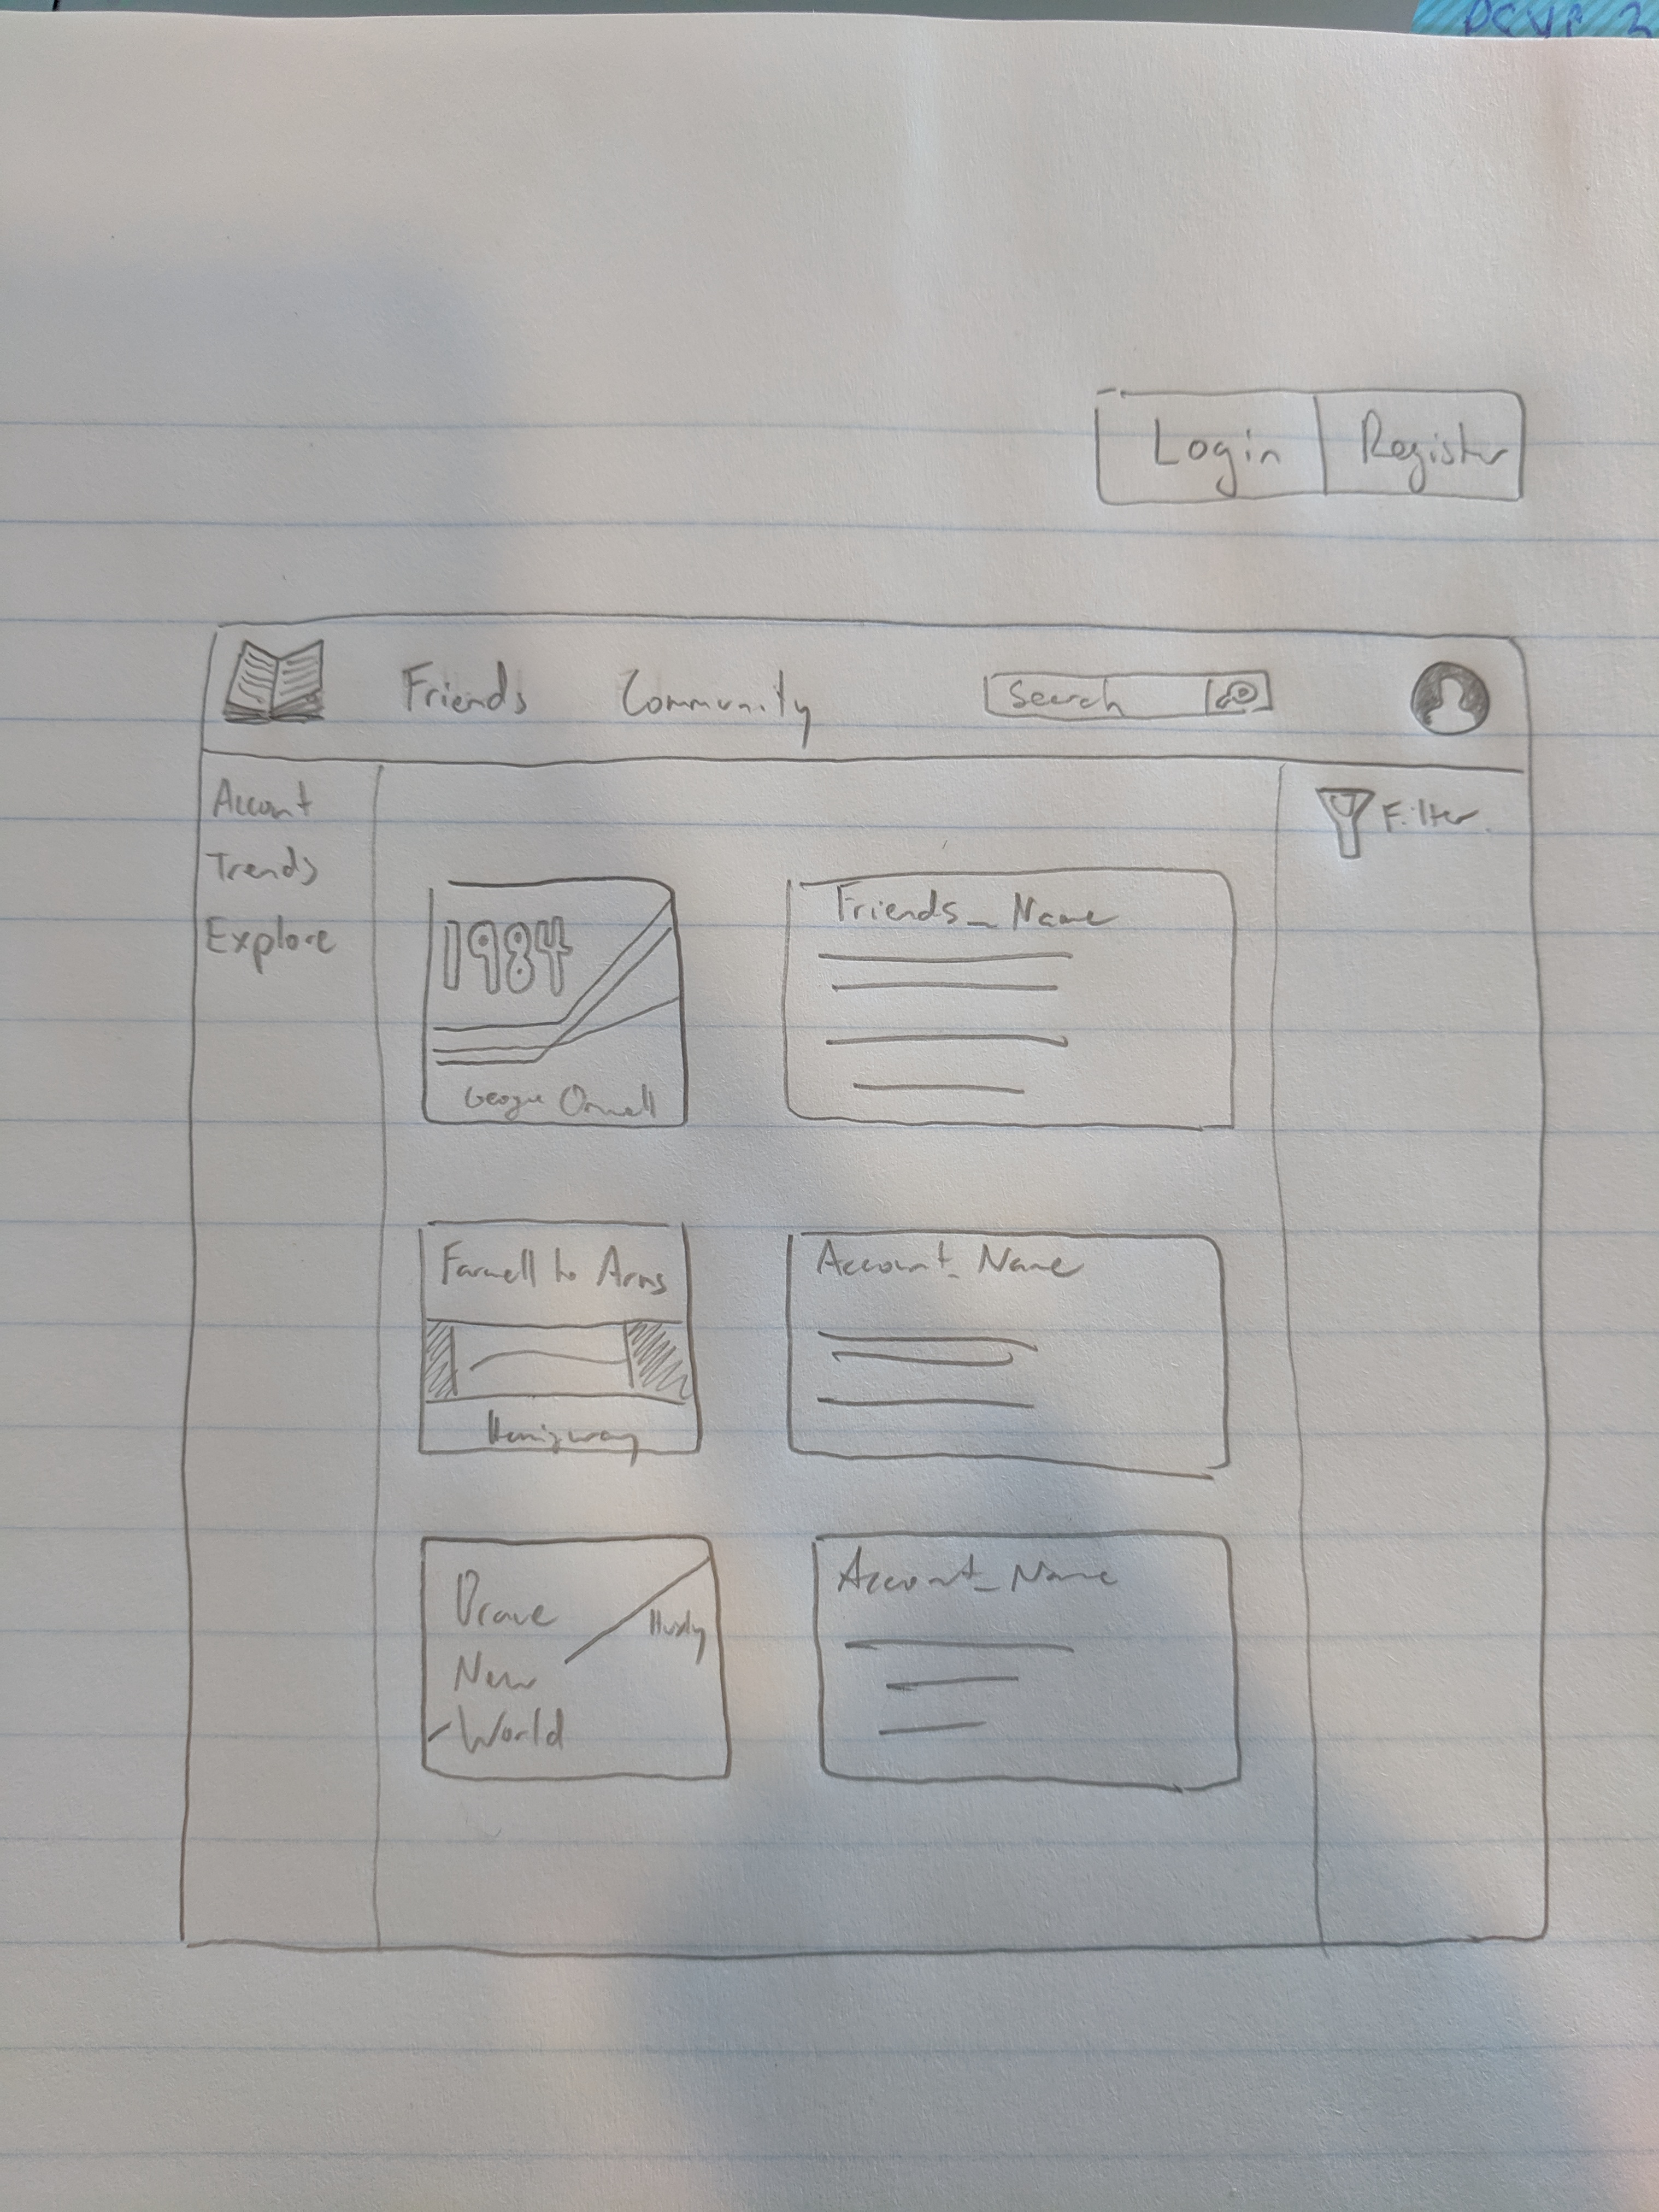 Login Register
Friends Community Search
Account
Trends
Explore
Filter
1984
George Orwell
Friends_Name
Farwell to Arms
Hemigway
Account_Name
Brave
New
World
Huxly
Account_Name